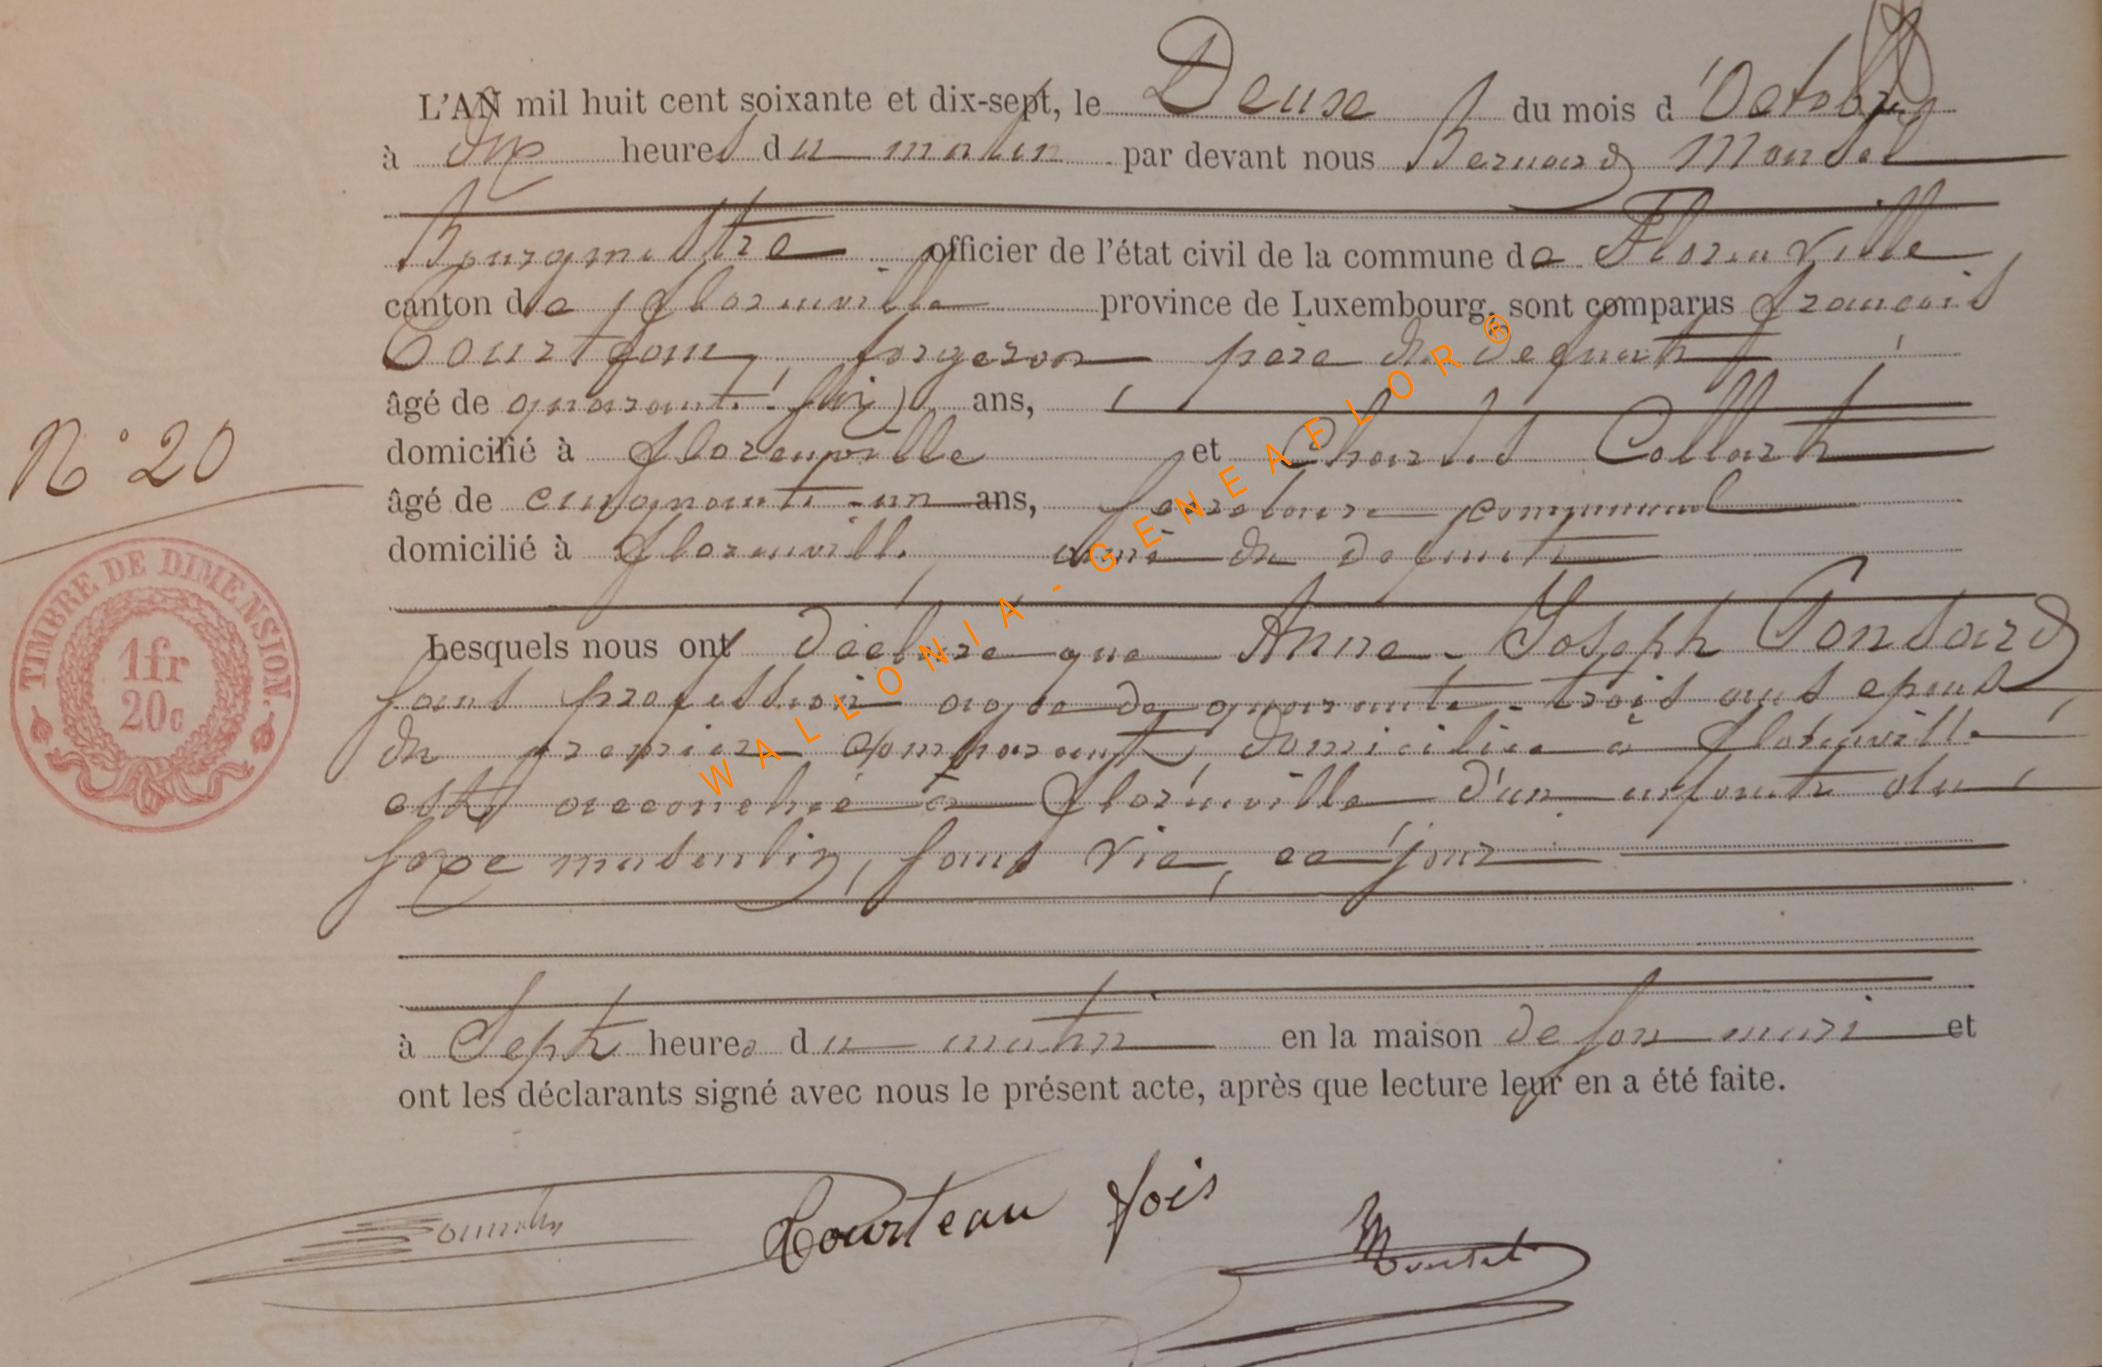 L'AN mil huit cent soixante et dix-sept, le Deuse du mois d'Octobre
à dix heures du matin par devant nous Bernard Mandel
Bourgmestre officier de l'état civil de la commune de Florenville
canton de Florenville province de Luxembourg, sont comparus françois
Courteau, forgeron père du defunt
âgé de quarante-six ans,
domicilié à florenville et Charles Collart
âgé de cinquante-un ans, communal
domicilié à florenville, ami du defunt
N° 20
TIMBRE DE DIMENSION.
1fr
20c
Lesquels nous ont déclaré que Anne-Joseph Ponsard
sans profession agée de quarante-trois ans epouse
du premier comparant, domiciliée à florenville
est accouchée à florenville d'un enfant du
sexe masculin, sans vie, ce jour
à Sept heures du matin en la maison de son mari et
ont les déclarants signé avec nous le présent acte, après que lecture leur en a été faite.
Courteau fois
WALLONIA - GENEAFLOR ®